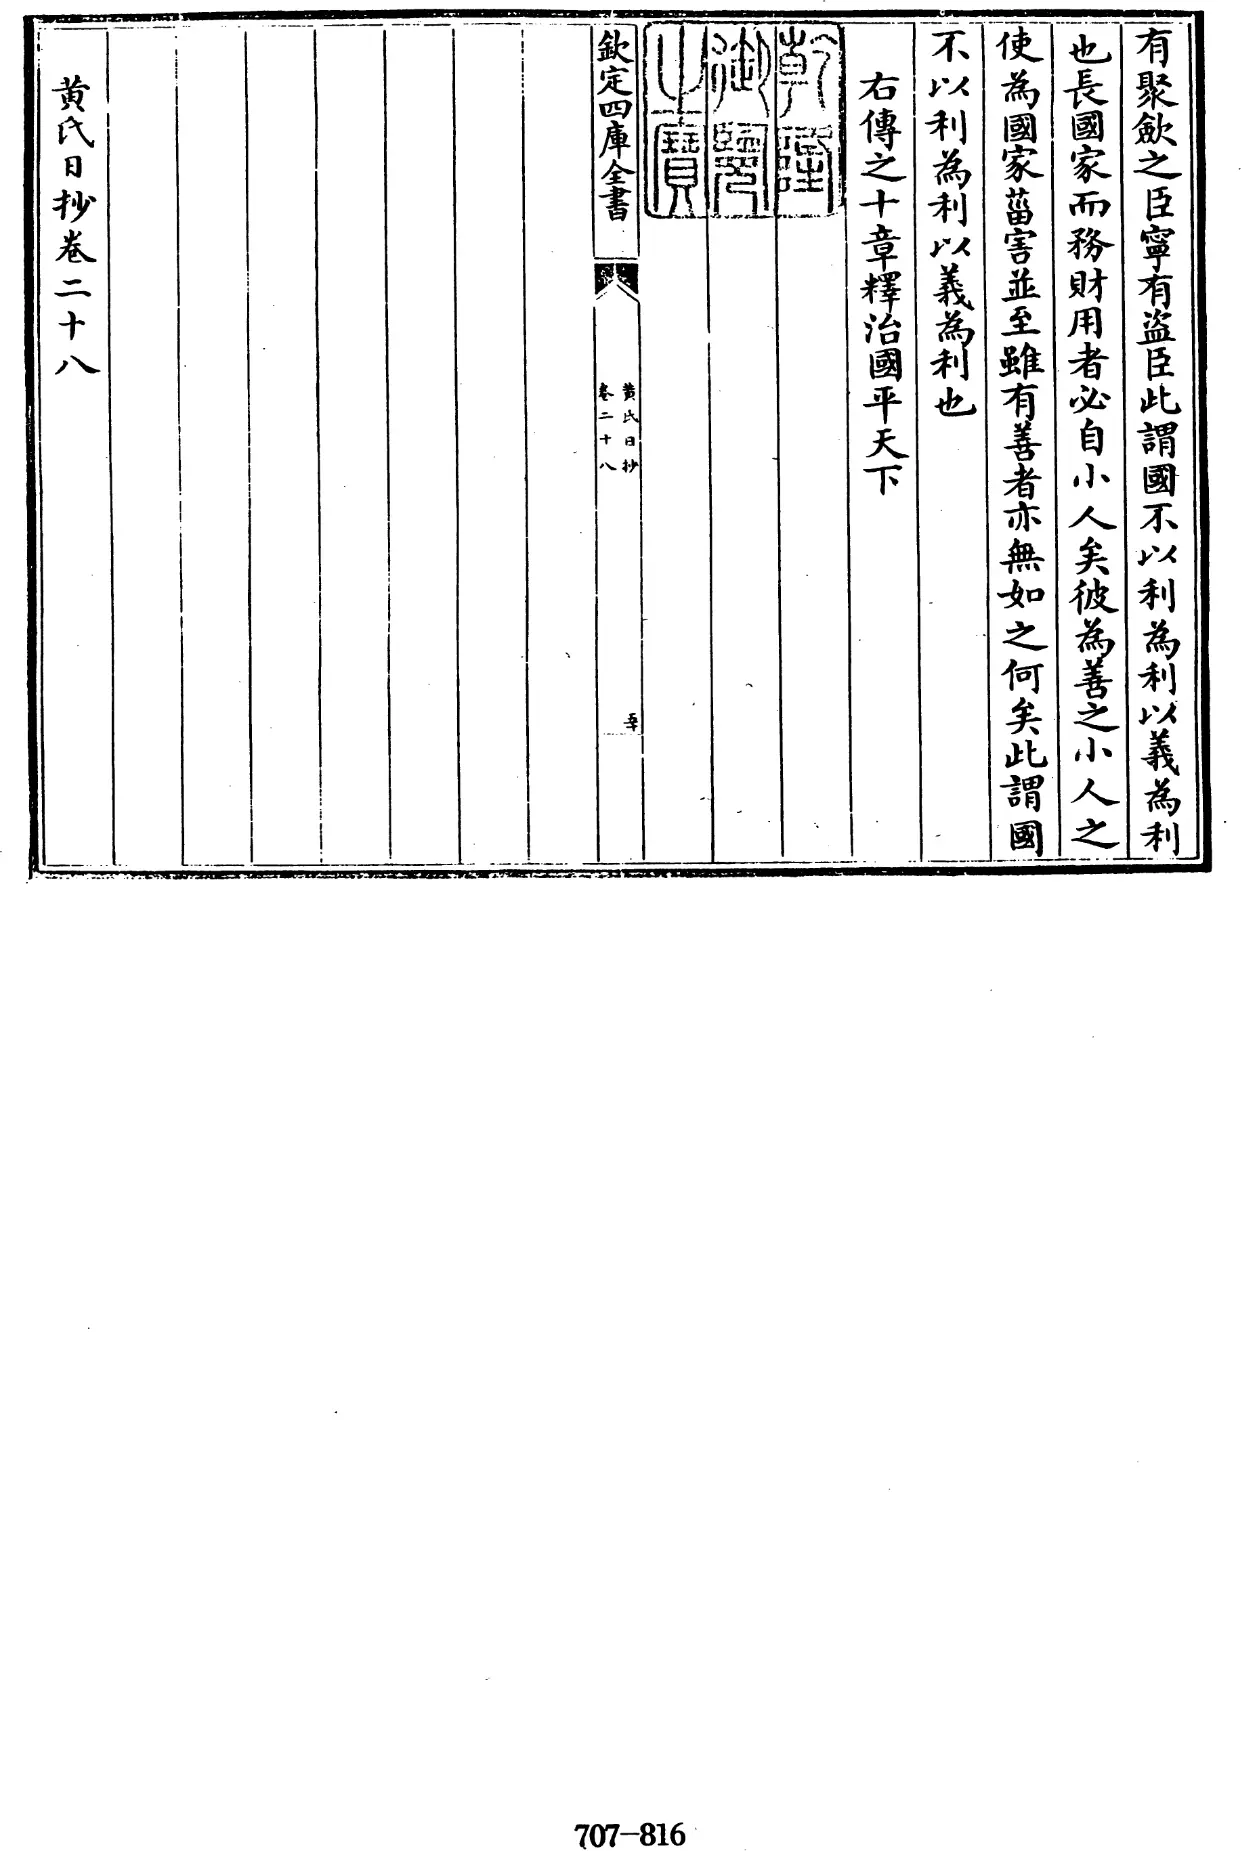 有聚歛之臣寧有盜臣此謂國不以利為利以義為利
也長國家而務財用者必自小人矣彼為善之小人之
使為國家菑害並至雖有善者亦無如之何矣此謂國
不以利為利以義為利也
右傳之十章釋治國平天下
乾隆
御覽
之寶
欽定四庫全書
黄氏日抄
卷二十八
黄氏日抄卷二十八
707-816